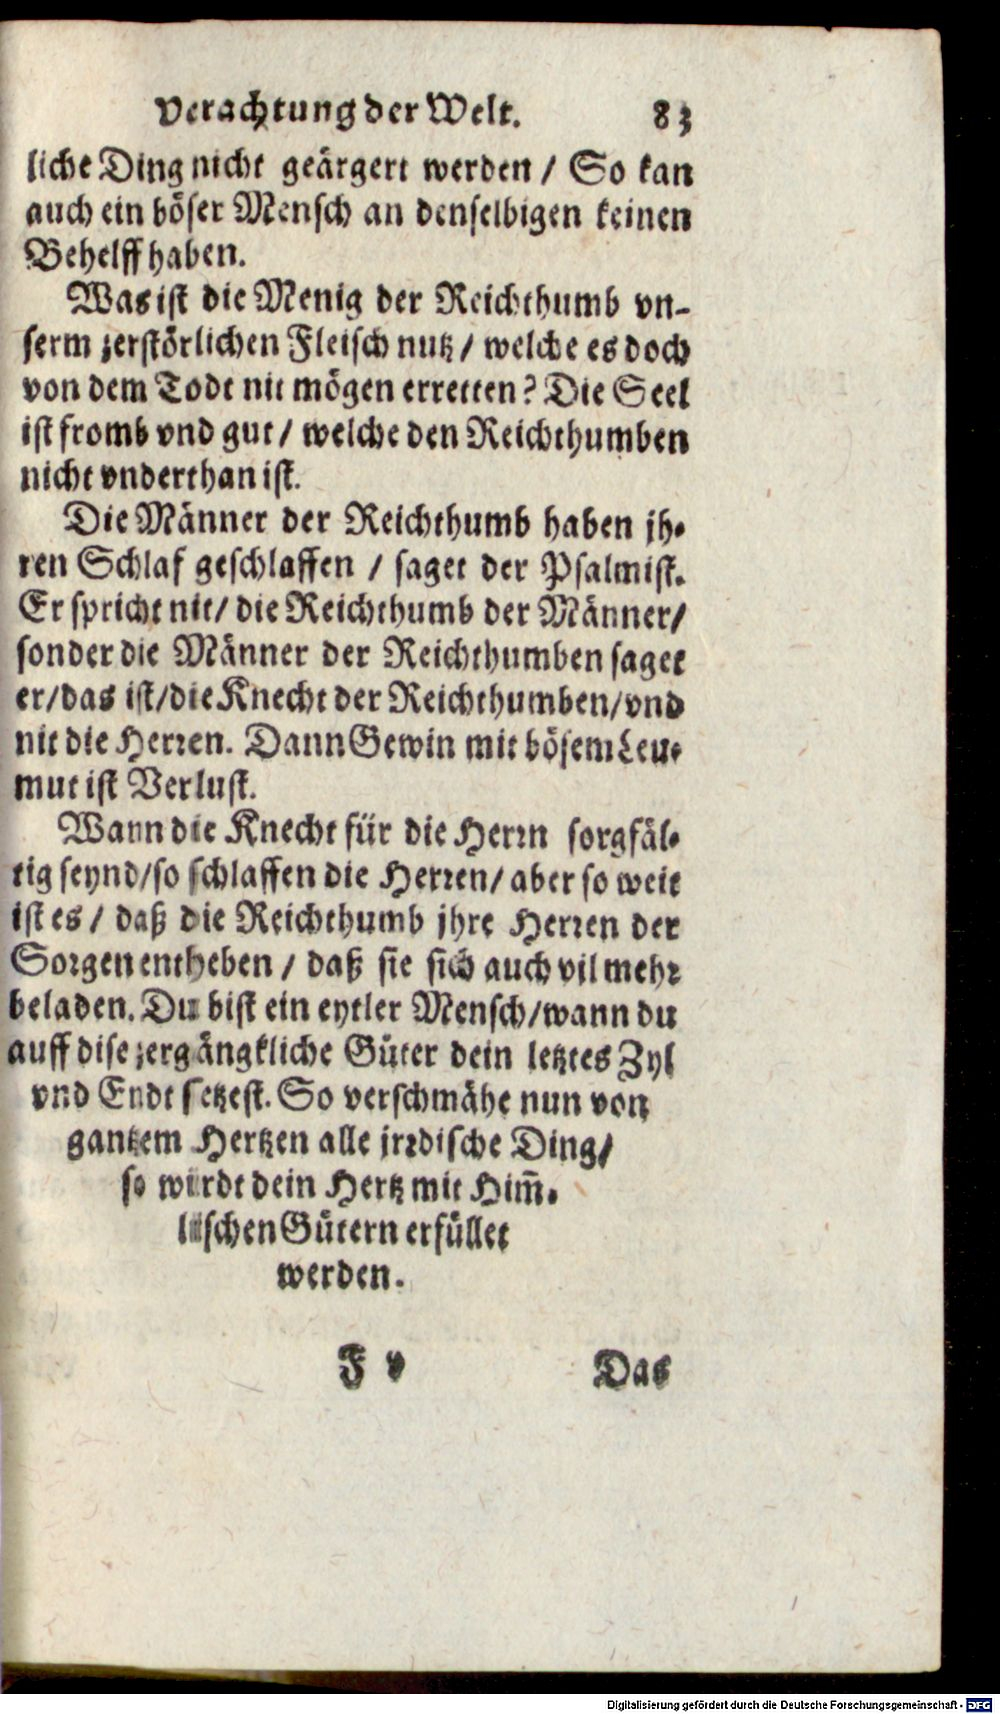 Verachtung der Welt. 83
liche Ding nicht geärgert werden / So kan
auch ein böser Mensch an denselbigen keinen
Behelff haben.
Was ist die Menig der Reichthumb vn-
serm zerstörlichen Fleisch nutz / welche es doch
von dem Todt nit mögen erretten? Die Seel
ist fromb vnd gut / welche den Reichthumben
nicht vnderthan ist.
Die Männer der Reichthumb haben jh-
ren Schlaf geschlaffen / saget der Psalmist.
Er spricht nit / die Reichthumb der Männer /
sonder die Männer der Reichthumben saget
er / das ist / die Knecht der Reichthumben / vnd
nit die Herren. Dann Gewin mit bösem Leu-
mut ist Verlust.
Wann die Knecht für die Herrn sorgfäl-
tig seynd / so schlaffen die Herren / aber so weit
ist es / daß die Reichthumb jhre Herren der
Sorgen entheben / daß sie sich auch vil mehr
beladen. Du bist ein eytler Mensch / wann du
auff dise zergängkliche Güter dein letztes Zyl
vnd Endt setzest. So verschmähe nun von
gantzem Hertzen alle jrrdische Ding /
so wirdt dein Hertz mit Him̃-
lischen Gütern erfüllet
werden.
F v Das
Digitalisierung gefördert durch die Deutsche Forschungsgemeinschaft - DFG